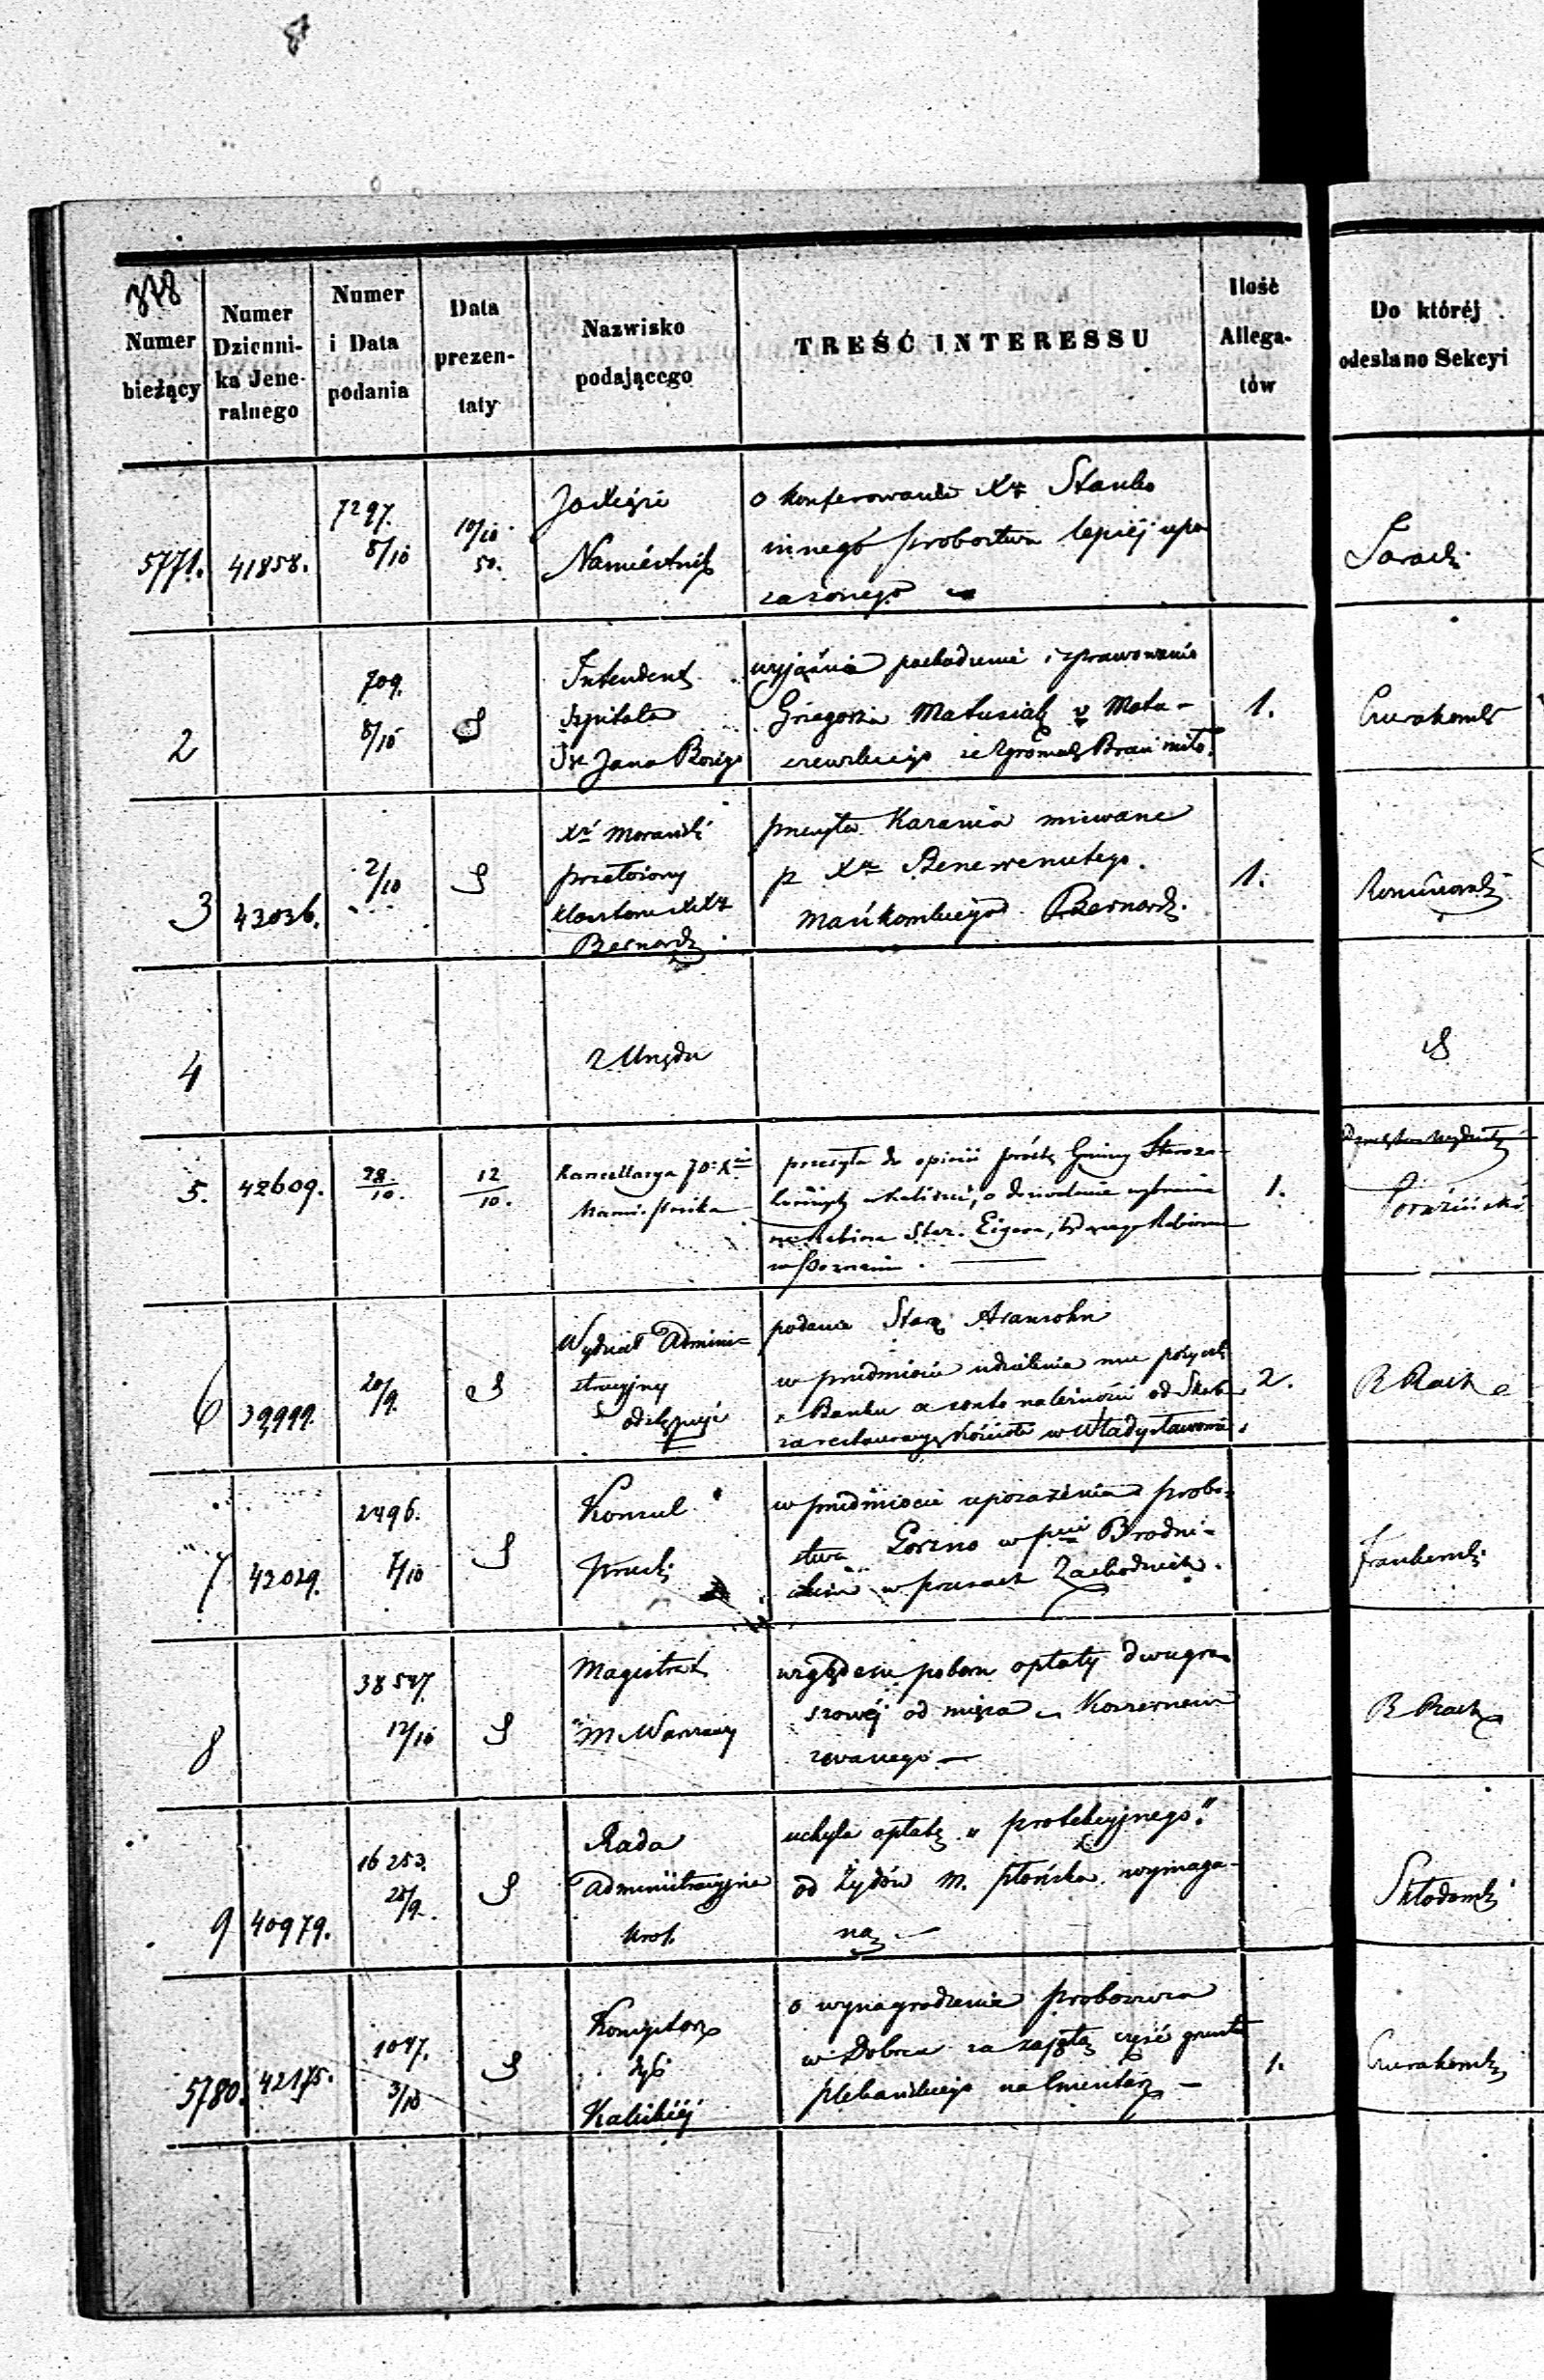 378
Numer bieżący
Numer Dzienni-ka Jene-ralnego
Numer i Data podania
Data prezen-taty
Nazwisko podającego
TREŚĆ INTERESSU
Ilość Allega-tów
Do któréj odesłano Sekcyi
5771. 41858. 7297. 8/10 10/10 50.
Namiestnik
o konferowanie Xz Stanko
innego probostwa lepiej upo
sażonego
2 709. 8/10
Intendent
Szpitala
Sw Jana Bożego
wyjaśnia pochodzenie i sprawowanie
Grzegorza Matusiak v Matu-
szewskiego ze Zgromadz Braci miło.
1.
3 43036. 2/10
Xdz Morawski
przełożony
klasztoru XXz
Bernardz.
przesyła Kazania miewane
p Xa Benewenutego
Mańkowskiego Bernardz.
1.
4 z Urzędu
5. 42609. 28./10. 12/10.
Kancellarya JO: Xcia
Namiestnika
przesyła do opinii prośbę Gminy Staroza-
konnych w Kaliszu, o dozwolenie wybrania
na Rabina Star. Eigera, Rabina
w Poznaniu.
1.
6 39,999. 20/9.
Wydział Admini-
stracyjny
odstępuje
podanie Star Aransohn
w przedmiocie udzielenia mu pożyczki
z Banku a conto należności od Skarbu
za restauracyę kościoła w Władysławowie.
2.
7 43029. 2496. 7/10
Konsul
Pruski
w przedmiocie uposażenia probo-
stwa Gorzno w pcie Brodni-
ckim w prusach Zachodnich.
8 38547. 12/10
Magistrat
M. Warszawy
względem poboru opłaty dwugro
szowéj od mięsa Koszernem
zwanego —
9 40979. 16253. 28/9.
Rada
Administracyjna
Król.
uchyla opłatę „protekcyjnego"
od Żydów m. Płońska wymaga-
ną —
Skłodowski
5780. 42175. 1047. 3/10
Konsystorz
Kaliskiéj
o wynagrodzenie proboszcza
w Dobrcu za zajętą część gruntu
plebańskiego na Cmentarz —
1.